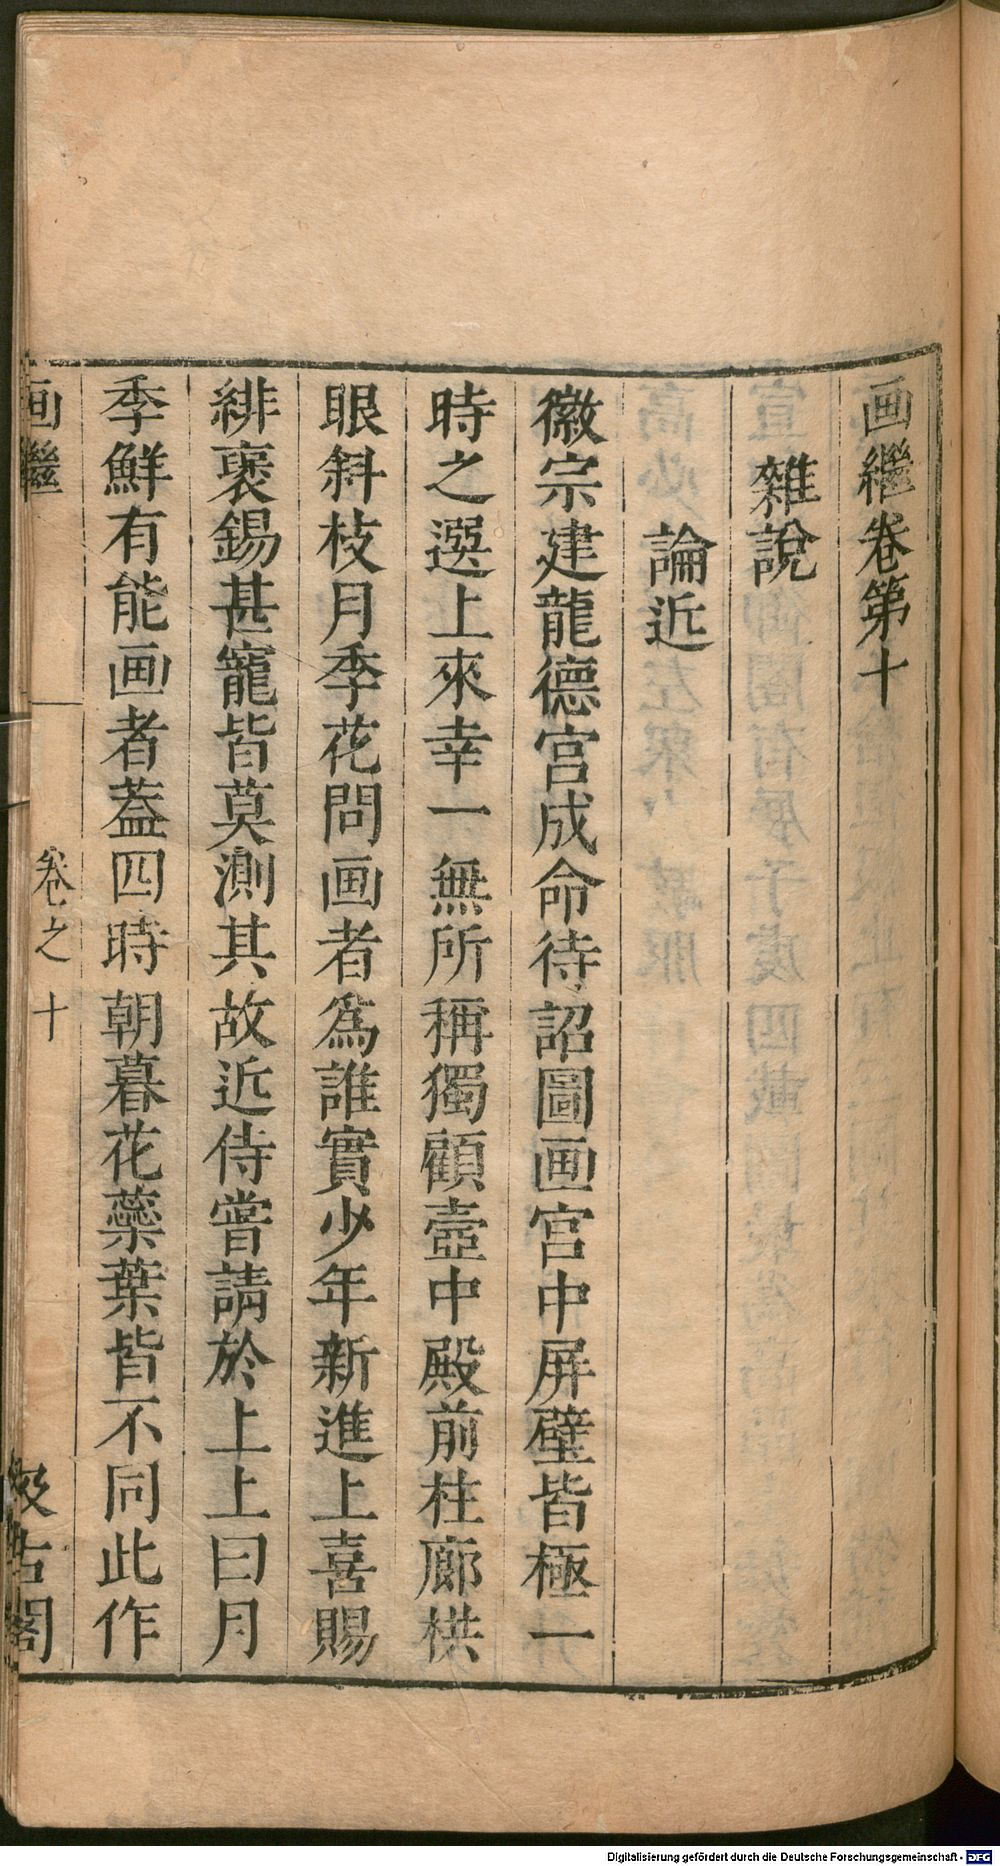 画繼卷第十
雜說
論近
徽宗建龍德宮成命待詔圖画宮中屏壁皆極一
時之選上來幸一無所稱獨顧壺中殿前柱廊栱
眼斜枝月季花問画者爲誰實少年新進上喜賜
緋褒錫甚寵皆莫測其故近侍嘗請於上上曰月
季鮮有能画者蓋四時朝暮花蘂葉皆不同此作
画繼
卷之十
汲古閣
Digitalisierung gefördert durch die Deutsche Forschungsgemeinschaft - DFG